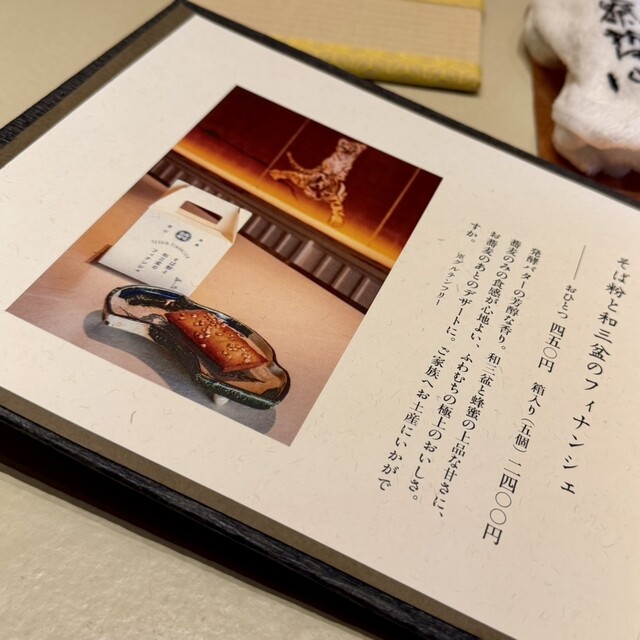 そば粉と和三盆のフィナンシェ
おひとつ 四五〇円 箱入り（五個）二四〇〇円
発酵バターの芳醇な香り。和三盆と蜂蜜の上品な甘さに、
蕎麦のみの食感が心地よい、ふわもちの極上のおいしさ。
お蕎麦のあとのデザートに。ご家族へお土産にいかがで
すか。
※グルテンフリー